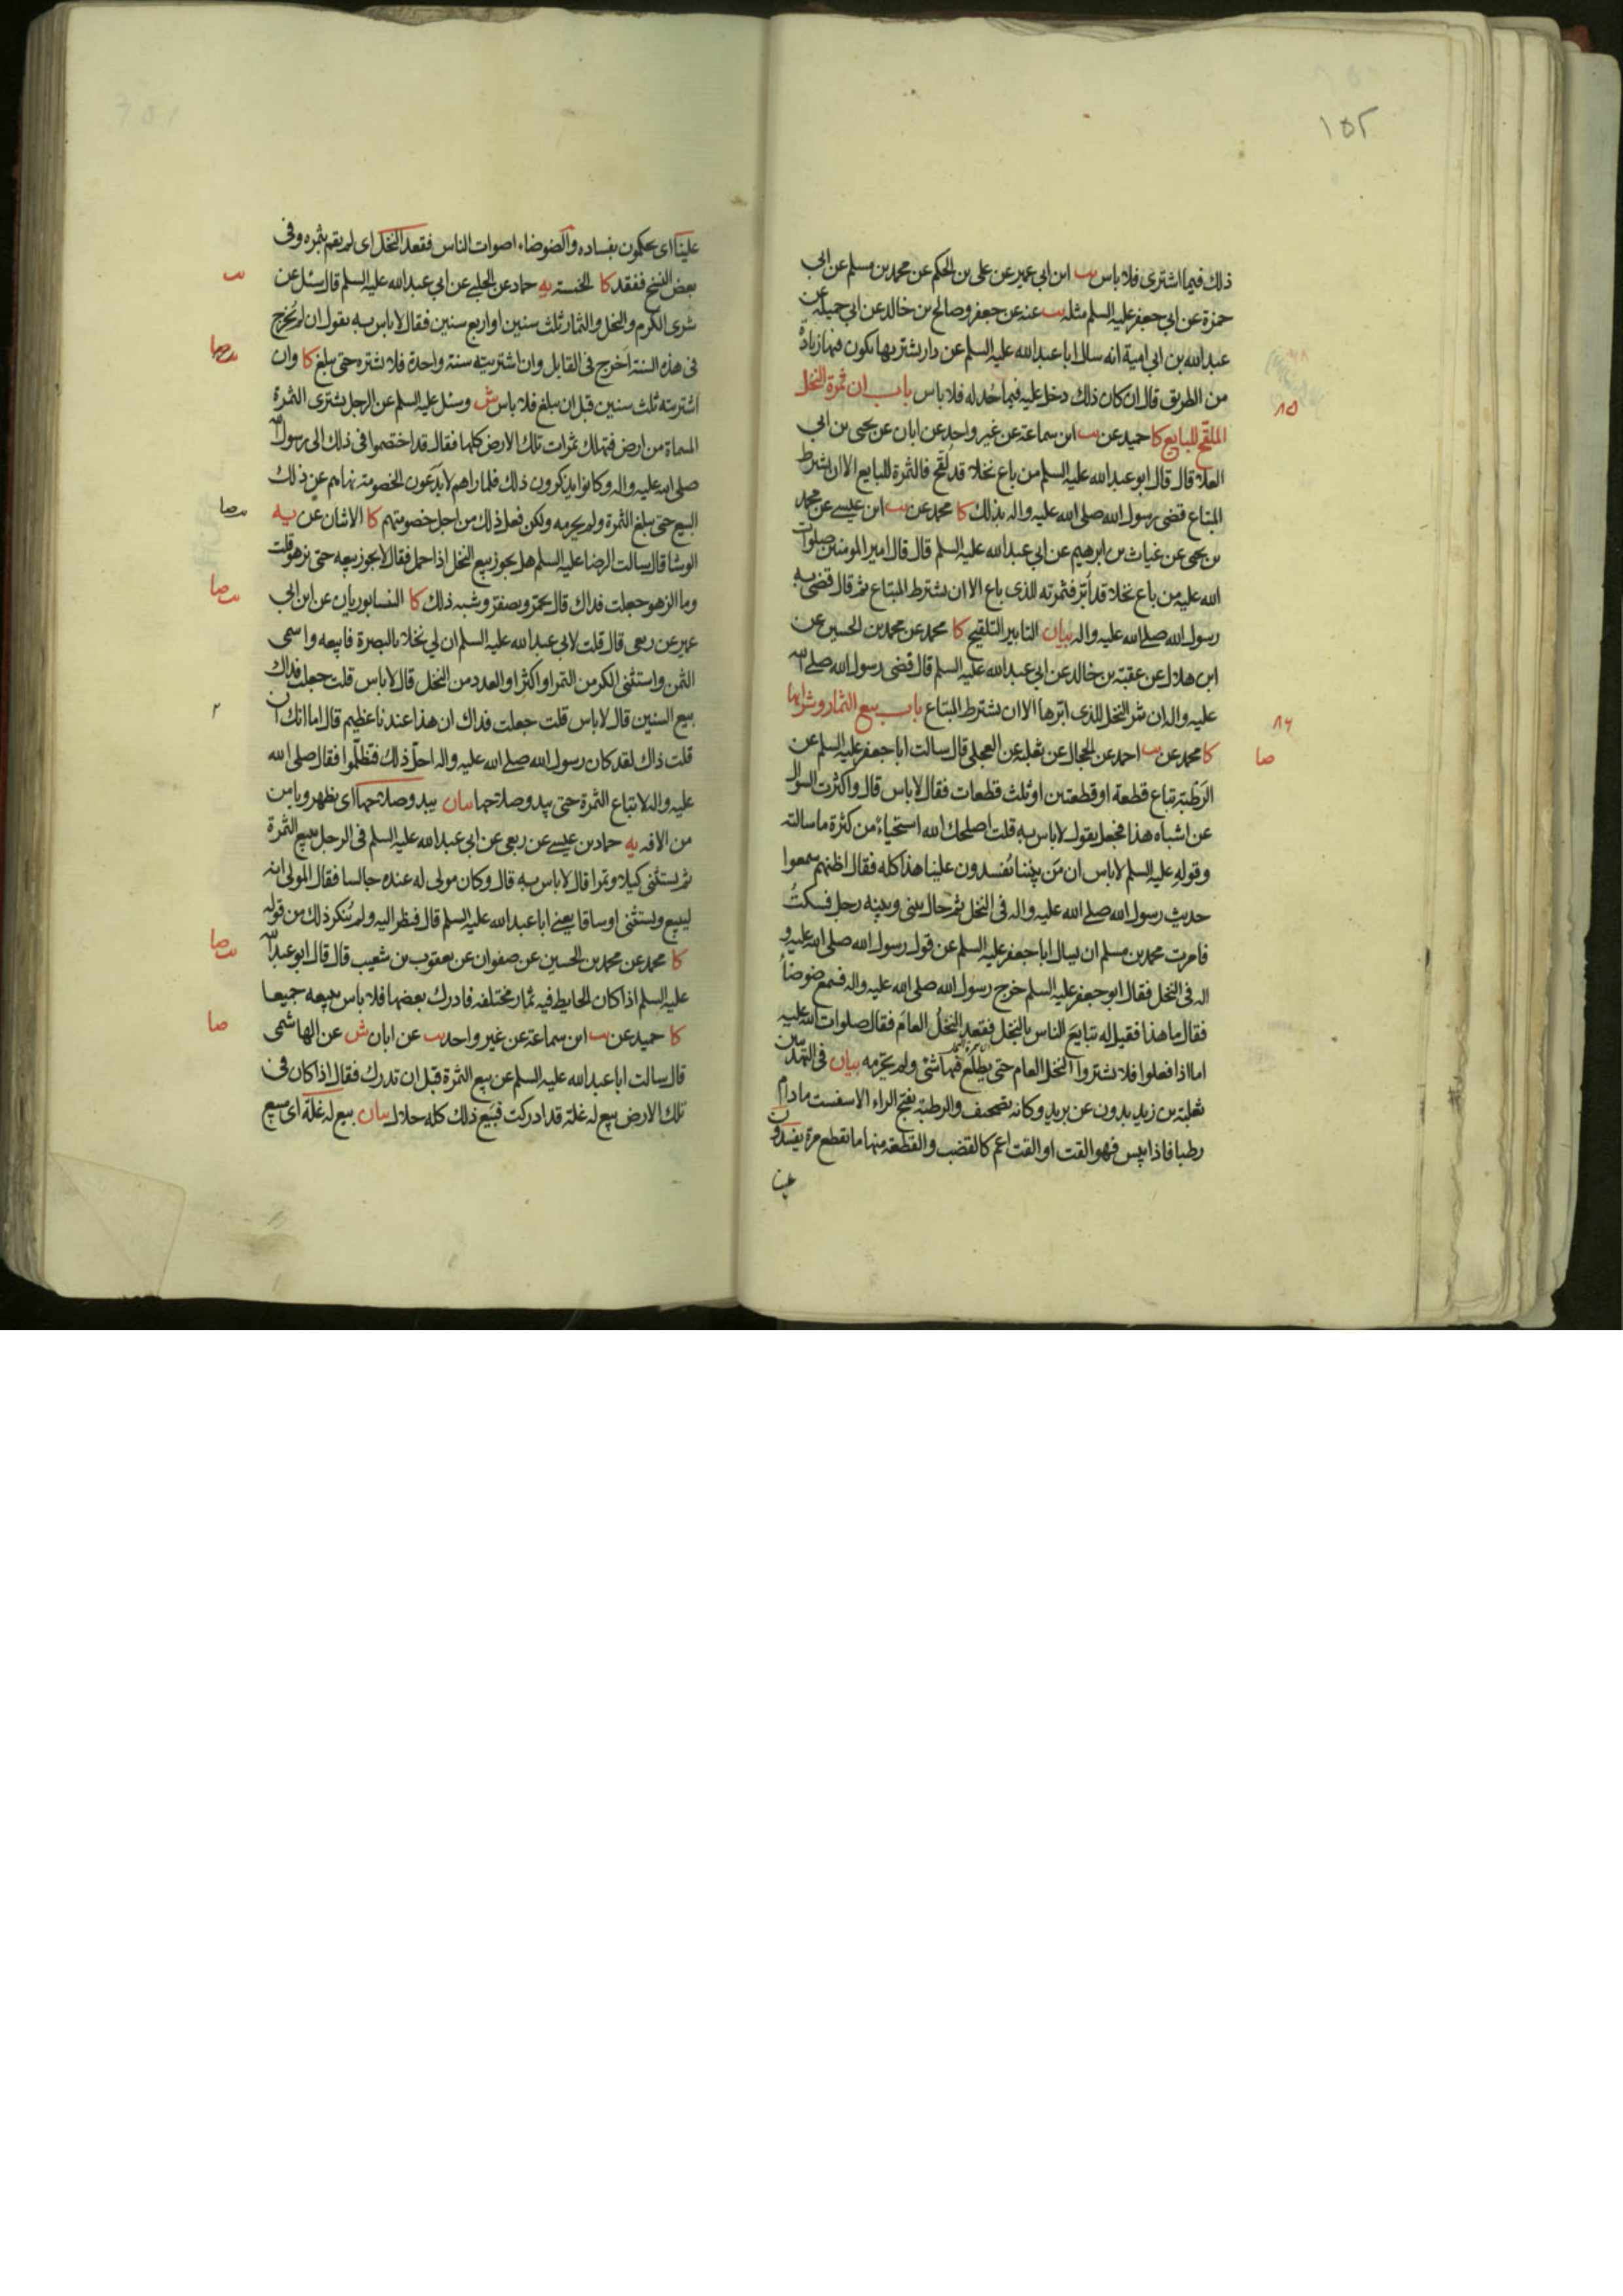 ١٥٢
ذلك فيما اشترى فلا باس يب ابن ابي عمير عن على بن الحكم عن محمد بن مسلم عن ابى
حمزة عن ابي جعفر عليه السلم مثله يب عنه عن جعفر وصالح بن خالد عن ابي جميلة عن
عبد الله بن ابي امية انه سال ابا عبد الله عليه السلم عن دار يشتريها يكون فيها زيادة
من الطريق قال ان كان ذلك دخل عليه فيما حُد له فلا باس باب ان ثمرة النخل
٨٥
الملقّح للبايع كا حميد عن يب ابن سماعة عن غير واحد عن ابان عن يحيى بن ابي
العلا قال قال ابو عبد الله عليه السلم من باع نخلا قد لقّح فالثمرة للبايع الا ان يشرط
المبتاع قضى رسول الله صلى الله عليه واله بذلك كا محمد عن يب ابن عيسى عن محمد
بن يحيى عن غياث بن ابرهيم عن ابي عبد الله عليه السلم قال قال امير المومنين صلوات
الله عليه من باع نخلا قد ابّر فثمرته للذى باع الا ان يشترط المبتاع ثم قال قضى به
رسول الله صلى الله عليه واله بيان التابير التلقيح كا محمد عن محمد بن الحسين عن
ابن هلال عن عقبة بن خالد عن ابي عبد الله عليه السلم قال قضى رسول الله صلى الله
عليه واله ان ثمر النخل للذى ابّرها الا ان يشترط المبتاع باب بيع الثمار وشرائها
٨٦
كا محمد عن يب احمد عن الحجال عن ثعلبة عن العجلى قال سالت ابا جعفر عليه السلم عن
صا
الرَطْبة تباع قطعة او قطعتين او ثلث قطعات فقال لا باس قال واكثرت السوال
عن اشباه هذا فجعل يقول لا باس به قلت اصلحك الله استحياءً من كثرة ما سالته
وقوله عليه السلم لا باس ان مَن يلينا يُفسدون علينا هذا كله فقال اظنهم سمعوا
حديث رسول الله صلى الله عليه واله فى النخل ثم حال بينى وبينه رجل فسكتُ
فامرت محمد بن مسلم ان يسال ابا جعفر عليه السلم عن قول رسول الله صلى الله عليه و
اله فى النخل فقال ابو جعفر عليه السلم خرج رسول الله صلى الله عليه واله فسمع ضوضاءً
فقال ما هذا فقيل له تبايع الناس بالنخل فقعد النخل العام فقال صلوات الله عليه
اما اذا فعلوا فلا تشتروا النخل العام حتى يطلع فيها شئ ولم يحرّمه بيان فى التهذيبين
ثعلبة بن زيد بدون عن بريد وكانه تصحيف والرطبة بفتح الراء الاسفست ما دام
رطبا فاذا يبس فهو القت او القت اعم كالقضب والقطعة منها ما تقطع مرة يفسدون
علينا
علينا اى يحكمون بفساده والضوضاء اصوات الناس فقعد النخل اى لم يقم بثمره وفى
بعض النسخ ففقد كا الخمسة يه حماد عن الحلبي عن ابي عبد الله عليه السلم قال سئل عن
يب
شرى الكرم والنخل والثمار ثلث سنين او اربع سنين فقال لا باس به يقول ان لم يُخرج
فى هذه السنة اَخرج فى القابل وان اشتريته سنة واحدة فلا تشتره حتى يبلغ كا وان
يب صا
اشتريته ثلث سنين قبل ان يبلغ فلا باس ش وسئل عليه السلم عن الرجل يشترى الثمرة
المسماة من ارض فتهلك ثمرات تلك الارض كلها فقال قد اختصموا فى ذلك الى رسول الله
صلى الله عليه واله وكانوا يذكرون ذلك فلما راهم لا يَدَعون الخصومة نهاهم عن ذلك
البيع حتى يبلغ الثمرة ولم يحرمه ولكن فعل ذلك من اجل خصومتهم كا الاثنان عن يه
يب صا
الوشا قال سالت الرضا عليه السلم هل يجوز بيع النخل اذا حمل فقال لا يجوز بيعه حتى يزهو قلت
وما الزهو جعلت فداك قال يحمرّ ويصفرّ وشبه ذلك كا النيسابوريان عن ابن ابي
يب صا
عمير عن ربعى قال قلت لابى عبد الله عليه السلم ان لي نخلا بالبصرة فابيعه واسمى
الثمن واستثنى الكر من التمر او اكثر او العدد من النخل قال لا باس قلت جعلت فداك
بيع السنين قال لا باس قلت جعلت فداك ان هذا عندنا عظيم قال اما انك ان
٢
قلت ذاك لقد كان رسول الله صلى الله عليه واله احلّ ذلك فتظلّموا فقال صلى الله
عليه واله لا تباع الثمرة حتى يبدو صلاحها بيان يبدو صلاحها اى يظهر ويامن
من الافة يه حماد بن عيسى عن ربعى عن ابي عبد الله عليه السلم فى الرجل يبيع الثمرة
ثم يستثنى كيلا وتمرا قال لا باس به قال وكان مولى له عنده جالسا فقال المولى انه
ليبيع ويستثنى اوساقا يعنى ابا عبد الله عليه السلم قال فنظر اليه ولم يُنكر ذلك من قوله
كا محمد عن محمد بن الحسين عن صفوان عن يعقوب بن شعيب قال قال ابو عبد الله
يب صا
عليه السلم اذا كان الحايط فيه ثمار مختلفه فادرك بعضها فلا باس ببيعه جميعا
كا حميد عن يب ابن سماعة عن غير واحد يب عن ابان ش عن الهاشمى
صا
قال سالت ابا عبد الله عليه السلم عن بيع الثمرة قبل ان تدرك فقال اذا كان فى
تلك الارض بيع له غلة قد ادركت فبَيع ذلك كله حلال بيان بيع له غلّة اى مبيع